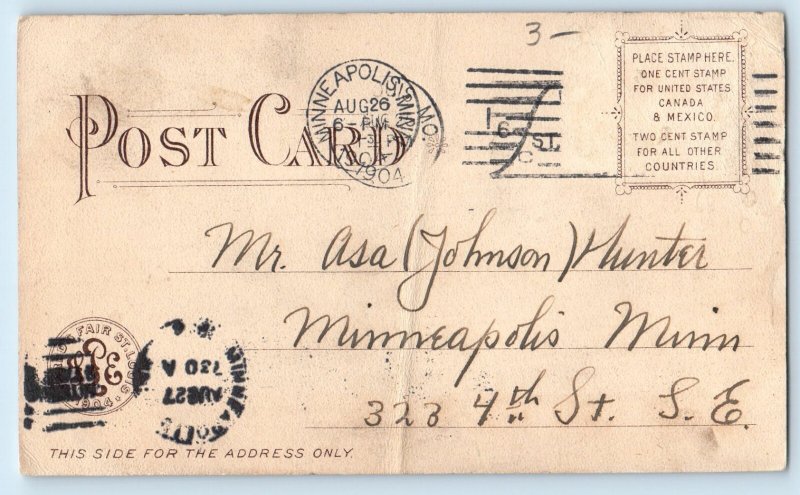 3-
POST CARD
MINNEAPOLIS, MINN.
AUG 26
6-PM
1904
MO.
ST.
PLACE STAMP HERE.
ONE CENT STAMP
FOR UNITED STATES
CANADA
& MEXICO.
TWO CENT STAMP
FOR ALL OTHER
COUNTRIES.
Mr. Asa (Johnson) Hunter
Minneapolis Minn
323 4th St. S. E.
FAIR ST. LOUIS
1904
MINNEAPOLIS
AUG 27
730 A
THIS SIDE FOR THE ADDRESS ONLY.